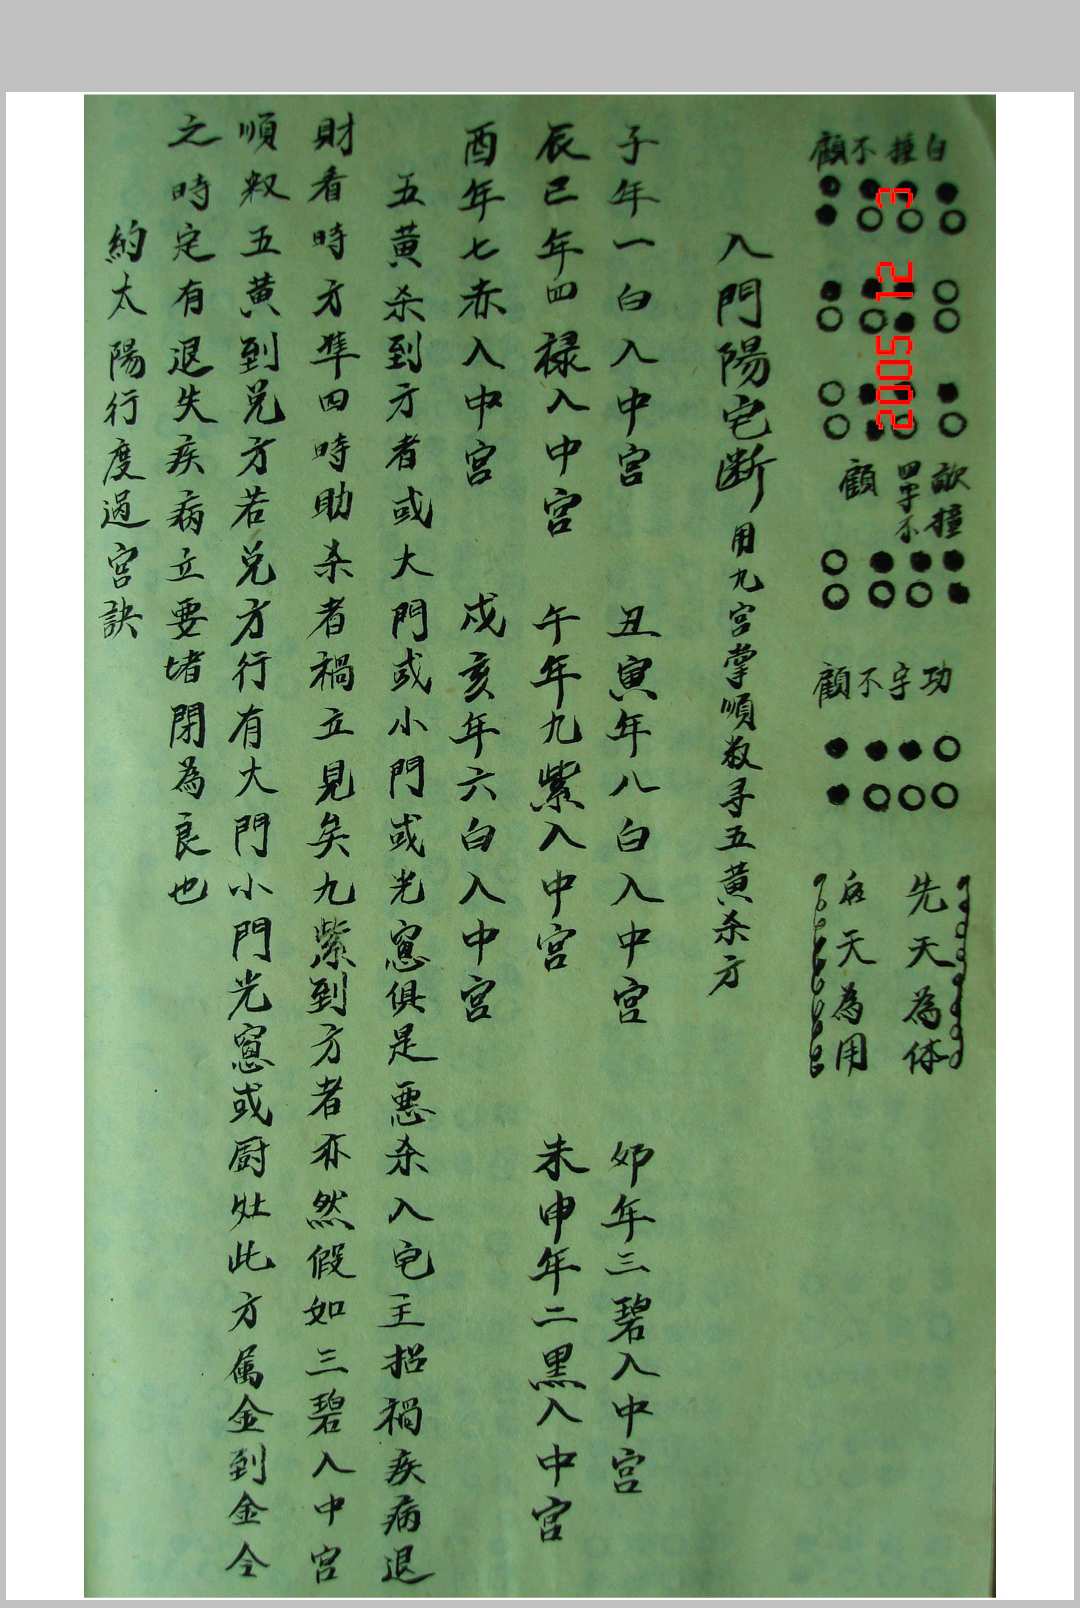 白撞不顧
歃撞
四字不
顧
功字不顧
先天為体
后天為用
入門陽宅断 用九宫掌順数寻五黄杀方
子年一白入中宫 丑寅年八白入中宫 卯年三碧入中宫
辰巳年四禄入中宫 午年九紫入中宫 未申年二黑入中宫
酉年七赤入中宫 戍亥年六白入中宫
五黄杀到方者或大門或小門或光窓俱是悪杀入宅主招禍疾病退
財看時方準四時助杀者禍立見矣九紫到方者亦然假如三碧入中宫
順数五黄到兑方若兑方行有大門小門光窓或厨灶此方属金到金令
之時定有退失疾病立要堵閉為良也
約太陽行度過宫訣
2005 12 3